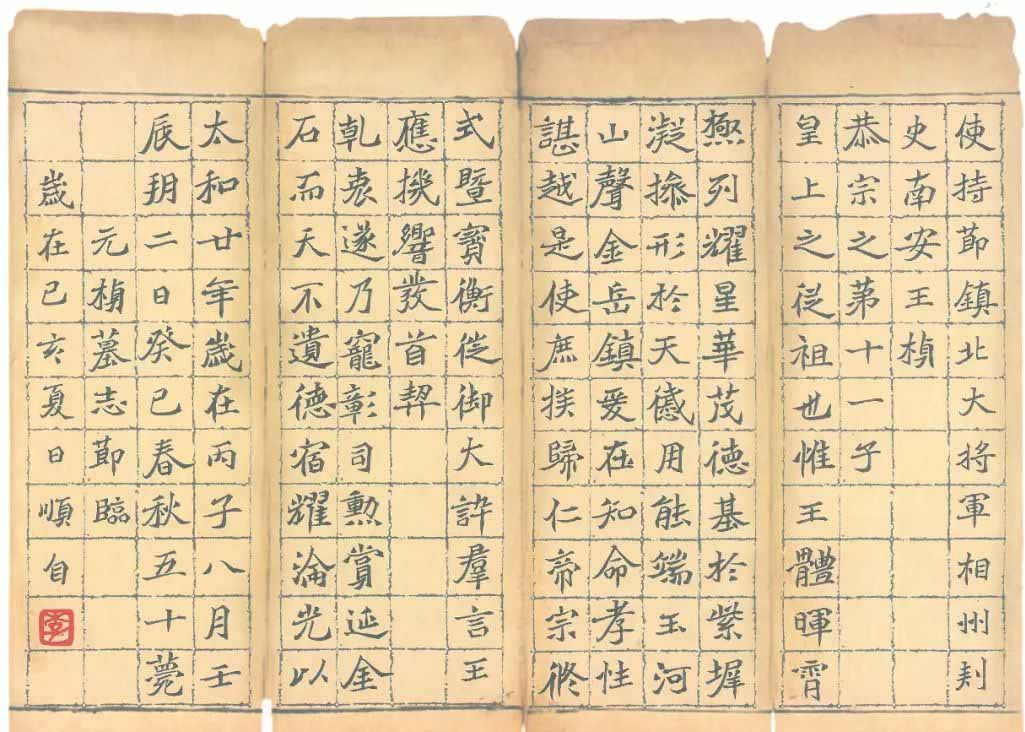 使持節鎮北大將軍相州刾
史南安王楨
恭宗之第十一子
皇上之從祖也惟王體暉霄
極列耀星華茂德基於紫墀
凝操形於天感用能端玉河
山聲金岳鎮爰在知命孝性
諶越是使庶族歸仁帝宗攸
式暨寳衡徙御大訏羣言王
應機響發首契
乾衷遂乃寵彰司勲賞延金
石而天不遺德宿耀淪光以
太和廿年歲在丙子八月壬
辰玥二日癸巳春秋五十薨
元楨墓志節臨
歲在己亥夏日順自